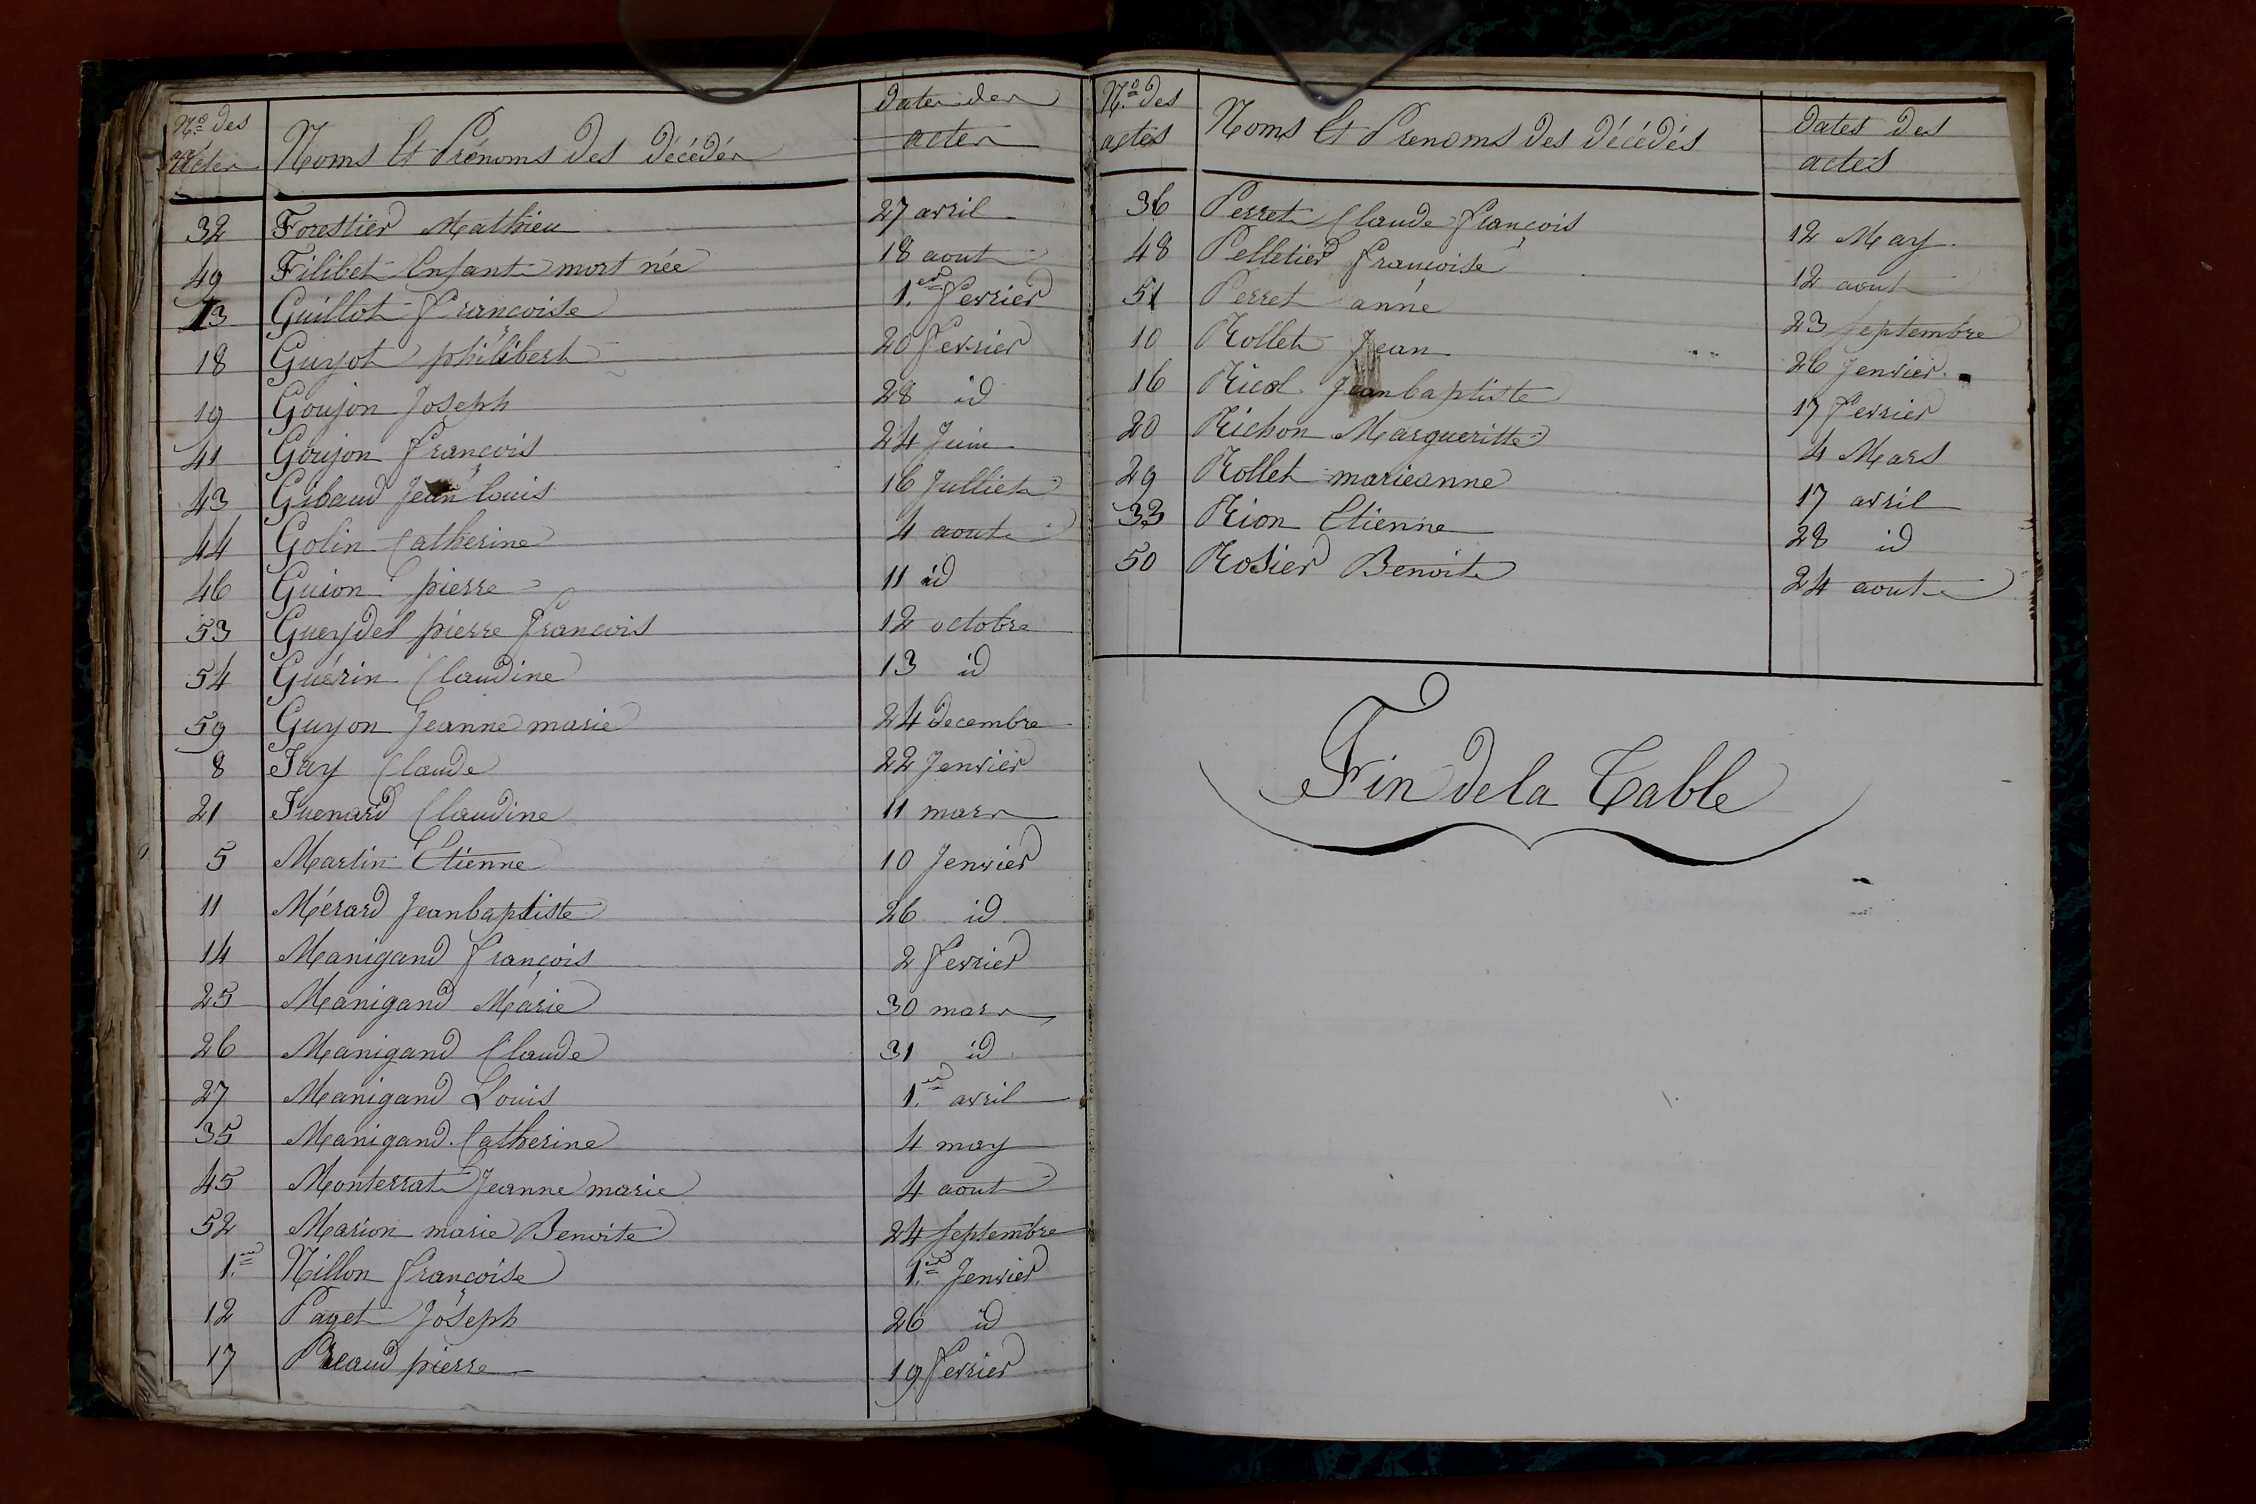 Nº des actes Noms Et Prénoms des décédés dates des actes
32 Forestier Mathieu 27 avril
49 Filibet Enfant mort née 18 aout
13 Guillot Françoise 1.er fevrier
18 Guyot philibert 20 fevrier
19 Goujon Joseph 28 id
41 Goujon François 24 Juin
43 Gibaud Jean Louis 16 Julliet
44 Golin Catherine 4 aout
46 Guion pierre 11 id
53 Gueydel pierre François 12 octobre
54 Guérin Claudine 13 id
59 Guyon Jeanne marie 24 decembre
8 Jay Claude 22 Jenvier
21 Juenard Claudine 11 mars
5 Martin Etienne 10 Jenvier
11 Mérard Jeanbaptiste 26 id
14 Manigand François 2 fevrier
25 Manigand Marie 30 mars
26 Manigand Claude 31 id
27 Manigand Louis 1.er avril
35 Manigand Catherine 4 may
45 Monterrat Jeanne marie 4 aout
52 Marion marie Benoite 24 septembre
1.er Nillon françoise 1.er Jenvier
12 Payet Joseph 26 id
17 pierre 19 fevrier
Nº des actes Noms Et Prenoms des décédés dates des actes
36 Perret Claude François 12 May
48 Pelletier françoise 12 aout
51 Perret anne 23 septembre
10 Rollet Jean 26 Jenvier
16 Jeanbaptiste 17 fevrier
20 Richon Margueritte 4 Mars
29 Rollet marieanne 17 avril
33 Rion Etienne 28 id
50 Rosier Benoit 24 aout
Fin de la Table